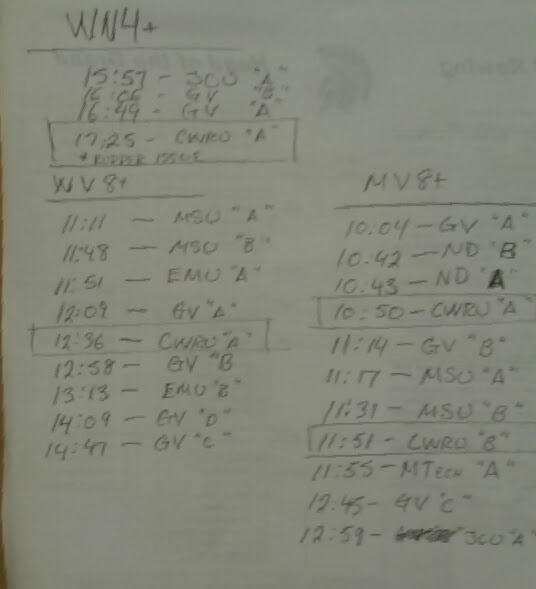 WN4+
15:57 - JCU "A"
16:06 - GV "B"
16:49 - GV "A"
17:25 - CWRU "A"
* RUDDER ISSUE
WV8+
11:11 - MSU "A"
11:48 - MSU "B"
11:51 - EMU "A"
12:09 - GV "A"
12:36 - CWRU "A"
12:58 - GV "B
13:13 - EMU "B"
14:09 - GV "D"
14:47 - GV "C"
MV8+
10:04 - GV "A"
10:42 - ND "B
10:43 - ND "A
10:50 - CWRU "A"
11:14 - GV "B"
11:17 - MSU "A"
11:31 - MSU "B"
11:51 - CWRU "B"
11:55 - MTECH "A"
12:45 - GV "C"
12:59 - JCU "A"
Head of the Grand
Rowing